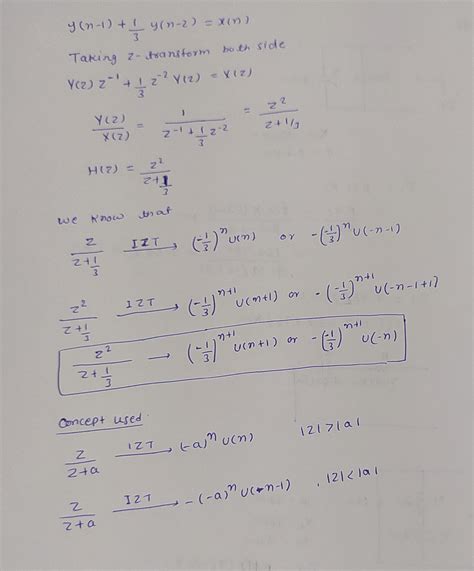 y(n-1) + 1/3 y(n-2) = x(n)
Taking z-transform both side
Y(z) z^-1 + 1/3 z^-2 Y(z) = X(z)
Y(z)/X(z) = 1/(z^-1 + 1/3 z^-2) = z^2/(z+1/3)
H(z) = z^2/(z+1/3)
we know that
z/(z+1/3) IZT → (-1/3)^n u(n) or -(-1/3)^n u(-n-1)
z^2/(z+1/3) IZT → (-1/3)^n+1 u(n+1) or -(-1/3)^n+1 u(-n-1+1)
z^2/(z+1/3) → (-1/3)^n+1 u(n+1) or -(-1/3)^n+1 u(-n)
Concept used
z/(z+a) IZT → (-a)^n u(n) |z|>|a|
z/(z+a) IZT → -(-a)^n u(-n-1) , |z|<|a|